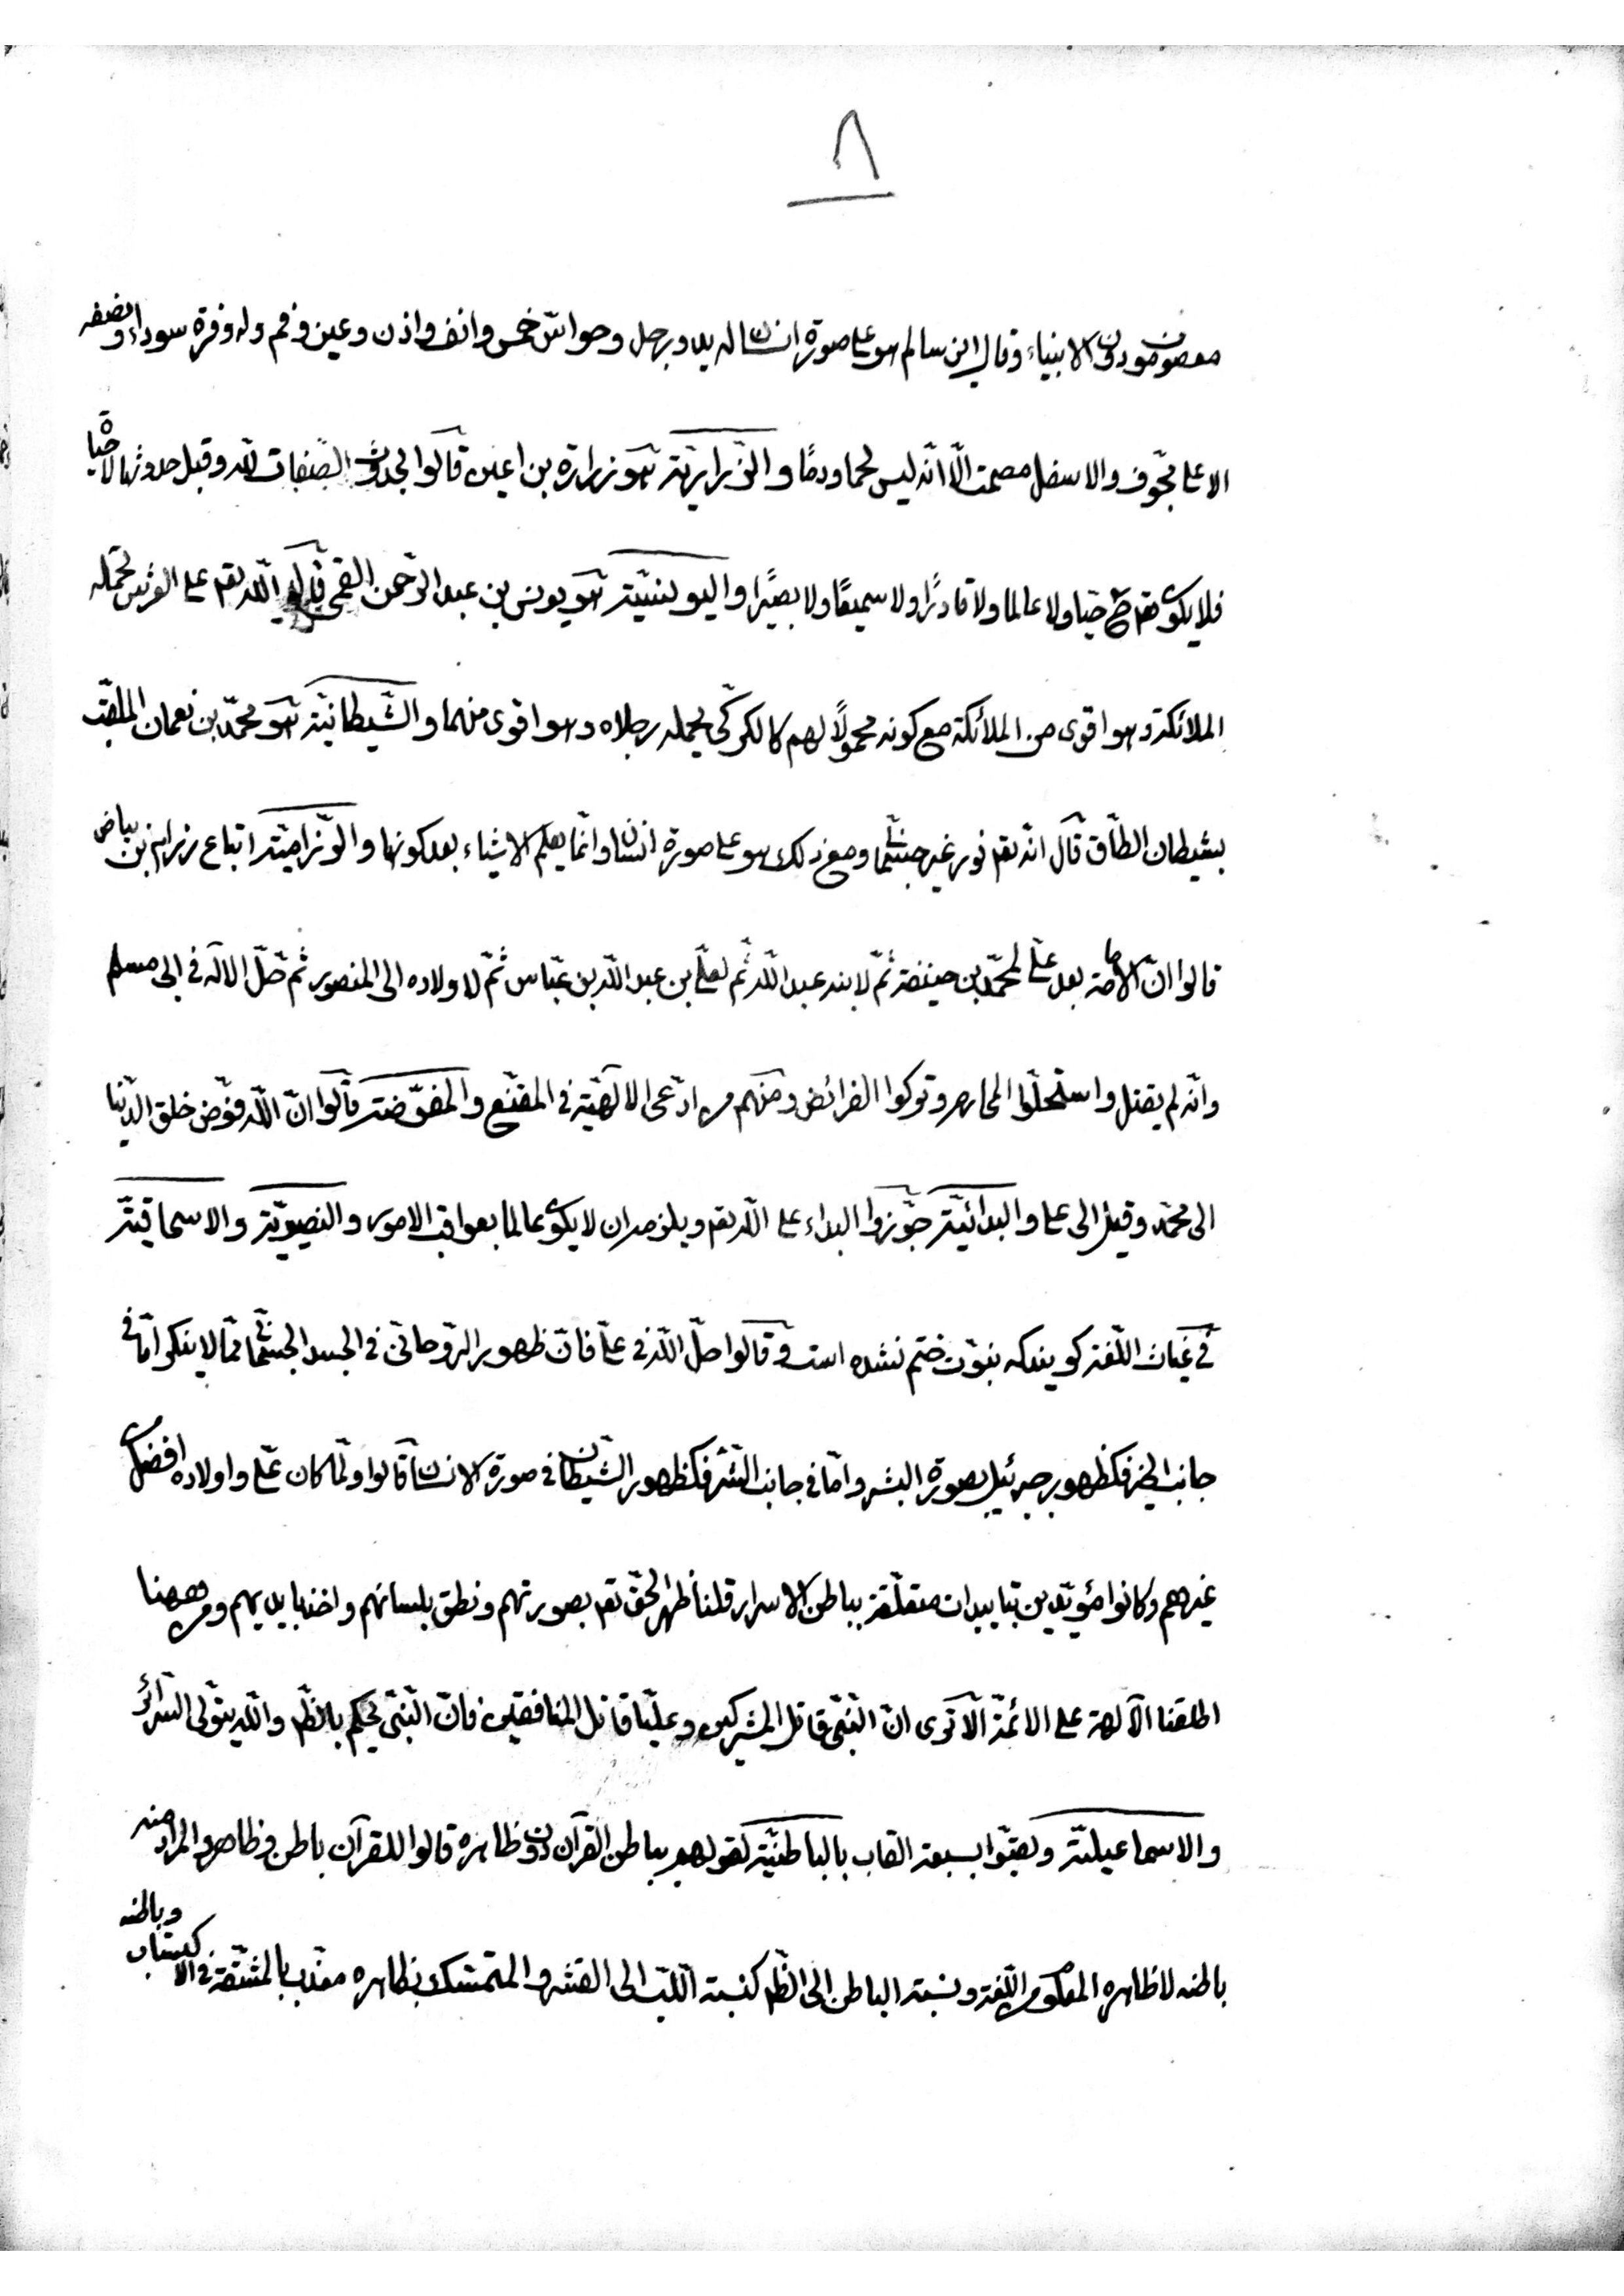 ٨
معصومون دون الانبياء وقال ابن سالم هو على صورة انسان له يد ورجل وحواس خمس وانف واذن وعين وفم وله وفرة سوداء ونصفه
الاعلى مجوف والاسفل مصمت الّا انّه ليس لحما ودمًا والزّراريّة هو زرارة بن اعين قالوا بحدوث الصّفات للّه وقبل حدوثها لا حيا
فلا يكون تعم ح حيّا ولا عالما ولا قادرًا ولا سميعًا ولا بصيرًا واليونسيّة هو يونس بن عبد الرّحمن القمى قال اللّه تعم على العرش تحمله
الملائكة وهو اقوى من الملائكة مع كونه محمولًا لهم كالكركىّ يحمله رجلاه وهو اقوى منهما والشّيطانيّة هو محمّد بن نعمان الملقّب
بشيطان الطّاق قال انّه تعم نور غير جسمانىّ ومع ذلك هو على صورة انسان وانّما يعلم الاشياء بعد كونها والزّراميّة اتباع زرام بن
قالوا انّ الامامة بعد علىّ لمحمّد بن حنيفة ثمّ لابنه عبد اللّه ثم لعلىّ بن عبد اللّه بن عبّاس ثمّ لاولاده الى المنصور ثم حلّ الاله فى ابى مسلم
وانّه لم يقتل واستحلّوا المحارم وتركوا الفرائض ومنهم من ادّعى الالهيّة فى المقنّع والمفوّضة قالوا انّ اللّه فوّض خلق الدّنيا
الى محمّد وقيل الى على والبدائيّة جوّزوا البداء على اللّه تعم ويلزمه ان لا يكون عالما بعواقب الامور والنصيريّة والاسحاقيّة
فى غياث اللّغة كويند كه نبوّت ختم نشده است و قالوا حلّ اللّه فى علىّ فانّ ظهور الرّوحانىّ فى الجسد الجسمانىّ ممّا لا ينكر امّا فى
جانب الخير فكظهور جبرئيل بصورة البشر وامّا فى جانب الشّر فكظهور الشّيطان فى صورة الانسان قالوا ولمّا كان علىّ واولاده افضل من
غيرهم وكانوا مؤيّدين بتاييدات متعلّقة بباطن الاسرار قلنا ظهر الحقّ تعم بصورتهم ونطق بلسانهم واخذ بايديهم ومن ههنا
اطلقنا الآلهة على الائمّة الّا ترى انّ النّبىّ قاتل المشركين وعليّا قاتل المنافقين فانّ النّبىّ يحكم بالظّم واللّه يتولى السّرائر
والاسماعيليّة ولقبّوا بسبعة القاب بالباطنيّة لقولهم بباطن القرآن دون ظاهره قالوا للقرآن باطن وظاهر والمراد منه
باطنه لا ظاهره المعلوم من اللّغة ونسبة الباطن الى الظّم كنسبة اللّبّ الى القشر والمتمسّك بظاهره معذّب بالمشقّة فى الاكتساب
وباطنه